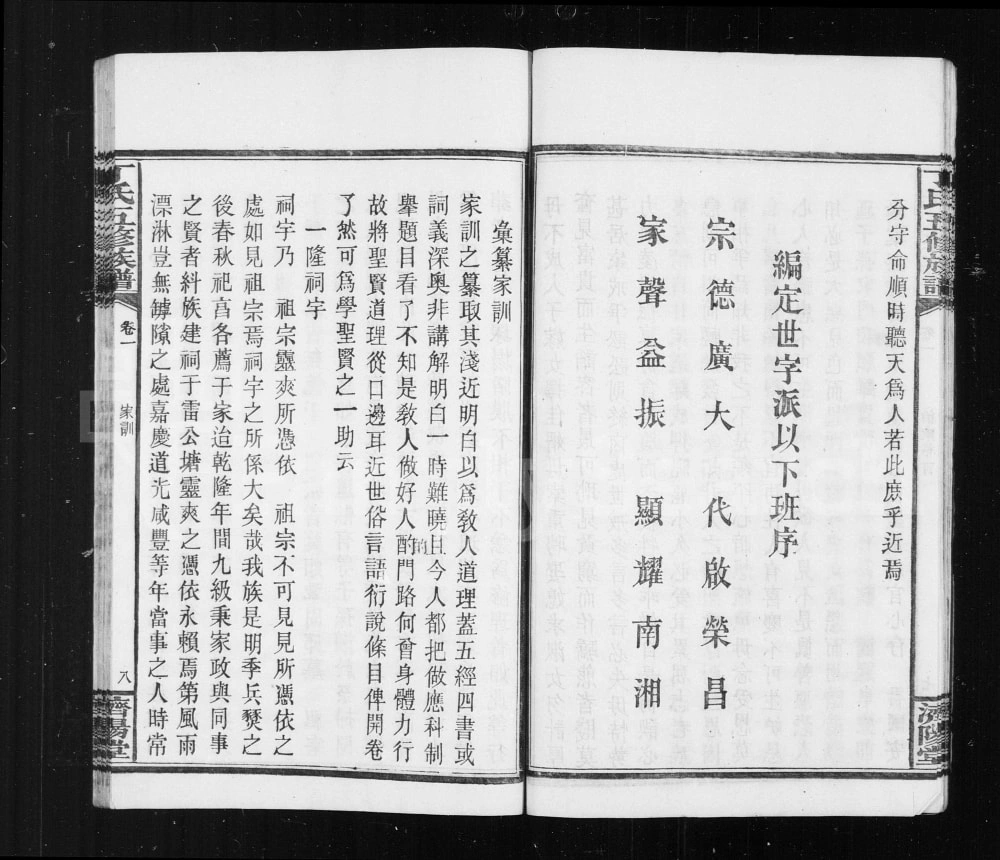 分守命順時聽天爲人若此庶乎近焉
編定世字派以下班序
宗德廣大代啟榮昌
家聲益振顯耀南湘
丁氏五修族譜
濟陽堂
彙纂家訓
家訓之纂取其淺近明白以爲敎人道理蓋五經四書或
詞義深奧非講解明白一時難曉且今人都把做應科制
舉題目看了不知是敎人做好人酌門路何曾身體力行
的
故將聖賢道理從口邊耳近世俗言語衍說條目俾開卷
了然可爲學聖賢之一助云
一隆祠宇
祠宇乃 祖宗靈爽所憑依 祖宗不可見見所憑依之
處如見祖宗焉祠宇之所係大矣哉我族是明季兵燹之
後春秋祀亯各薦于家迨乾隆年間九級秉家政與同事
之賢者糾族建祠于雷公塘靈爽之憑依永賴焉第風雨
漂淋豈無罅隙之處嘉慶道光咸豐等年當事之人時常
丁氏五修族譜
卷一
家訓
八
濟陽堂